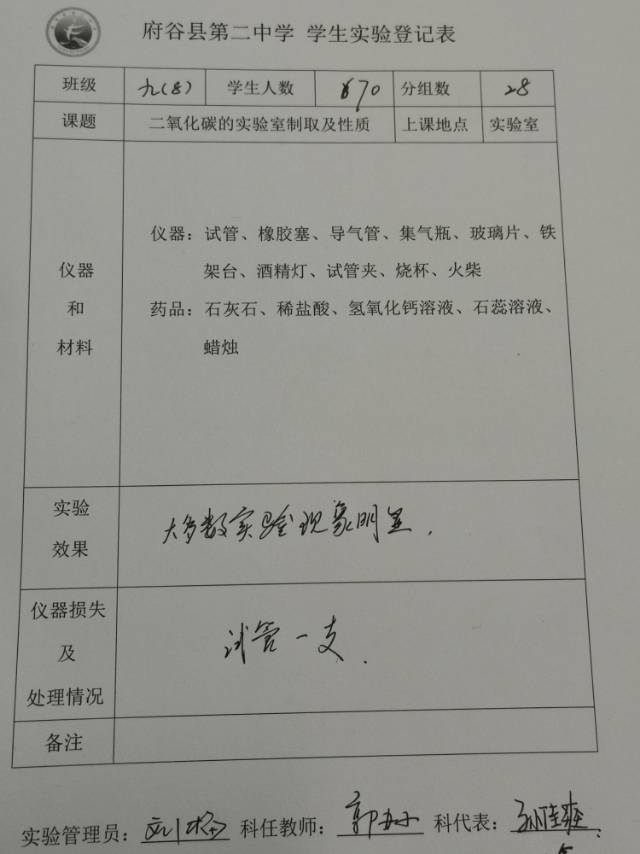 府谷县第二中学 学生实验登记表
班级 九(8) 学生人数 70 分组数 28
课题 二氧化碳的实验室制取及性质 上课地点 实验室
仪器：试管、橡胶塞、导气管、集气瓶、玻璃片、铁
架台、酒精灯、试管夹、烧杯、火柴
药品：石灰石、稀盐酸、氢氧化钙溶液、石蕊溶液、
蜡烛
仪器
和
材料
实验
效果
大多数实验现象明显.
仪器损失
及
处理情况
试管一支.
备注
实验管理员： 科任教师： 科代表：